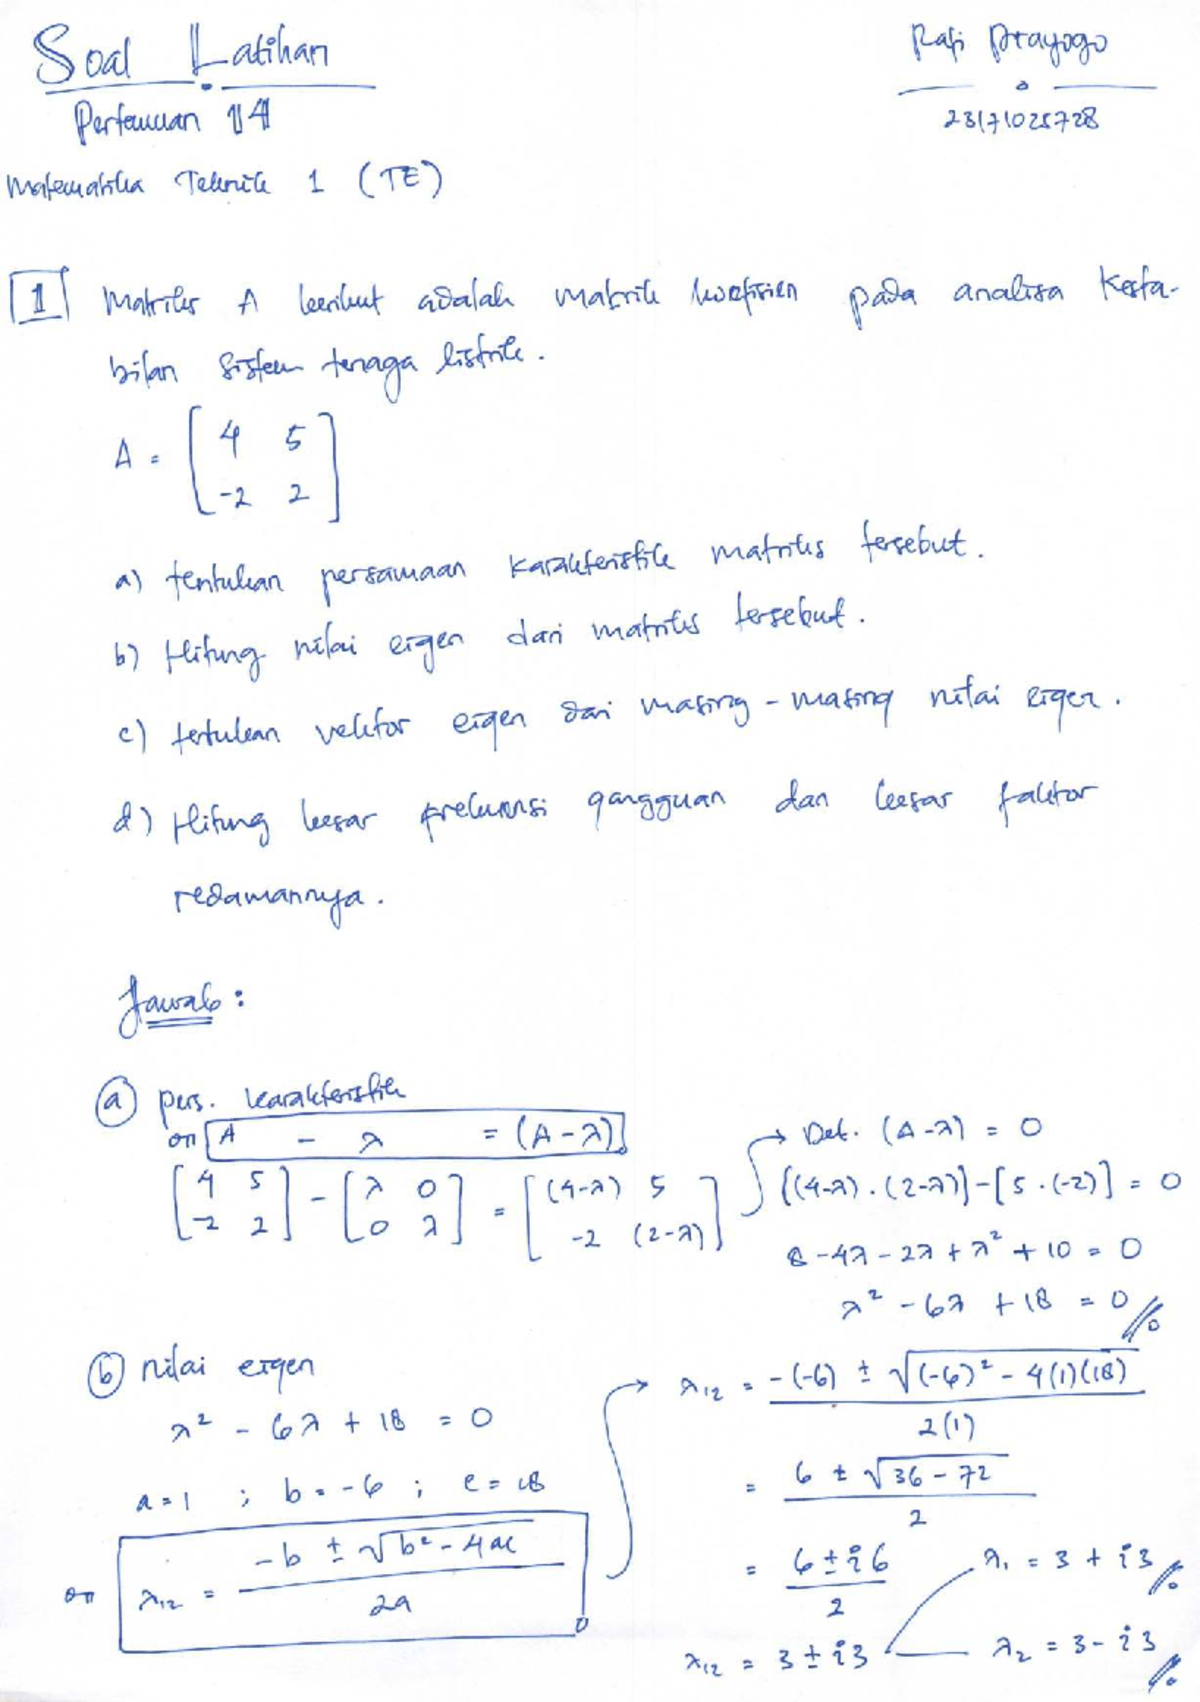 Soal Latihan
Pertemuan 14
Rafi Prayogo
23171025728
Matematika Teknik 1 (TE)
1 Matriks A berikut adalah matrik koefisien pada analisa Kesta-
bilan sistem tenaga listrik.
A = [ 4 5
-2 2 ]
a) tentukan persamaan karakteristik matriks tersebut.
b) Hitung nilai eigen dari matriks tersebut.
c) tentukan vektor eigen dari masing-masing nilai eigen.
d) Hitung besar frekuensi gangguan dan besar faktor
redamannya.
Jawab:
(a) pers. karakteristik
A - λ = (A-λ)
[ 4 5 ] - [ λ 0 ] = [ (4-λ) 5 ]
[ -2 2 ] [ 0 λ ] [ -2 (2-λ) ]
→ Det. (A-λ) = 0
[(4-λ).(2-λ)]-[5.(-2)] = 0
8-4λ-2λ+λ²+10 = 0
λ²-6λ+18 = 0
(b) nilai eigen
λ² - 6λ + 18 = 0
a=1 ; b=-6 ; c=18
λ12 = -b ± √b²-4ac
2a
→ λ12 = -(-6) ± √(-6)²-4(1)(18)
2(1)
= 6 ± √36-72
2
= 6 ± i6
2
λ12 = 3 ± i3
λ1 = 3 + i3
λ2 = 3 - i3